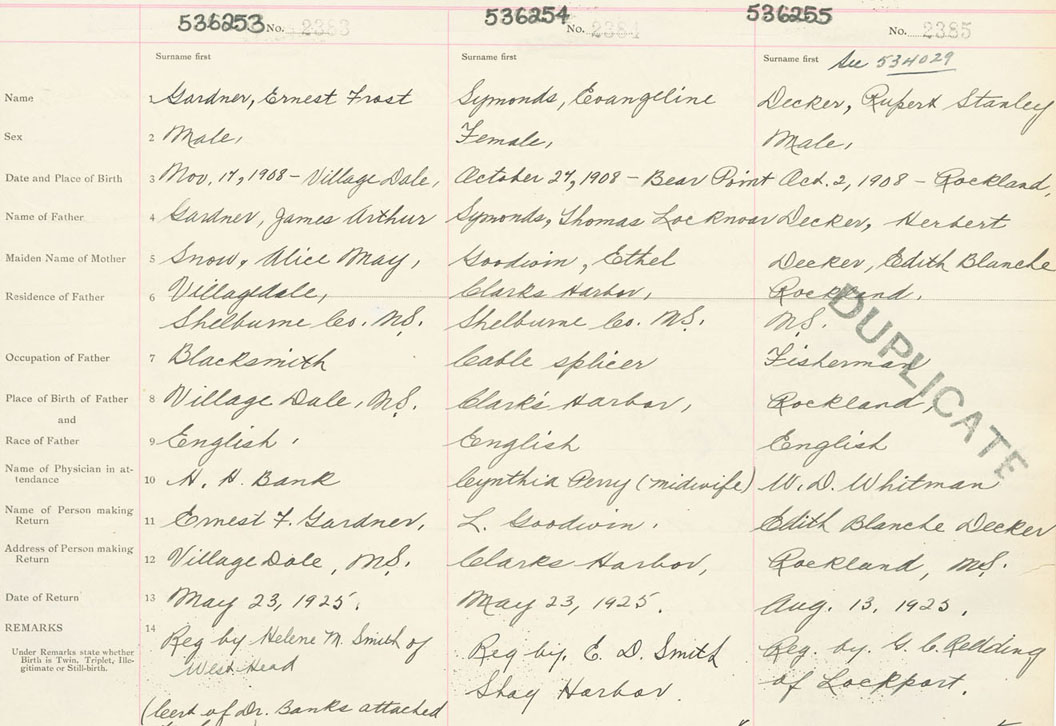 536253 No. 2383
536254 No. 2384
536255 No. 2385
Surname first
Surname first
Surname first See 534029
Name 1 Gardner, Ernest Frost Symonds, Evangeline Decker, Rupert Stanley
Sex 2 Male, Female, Male,
Date and Place of Birth 3 Nov. 17, 1908 - Village Dale, October 27, 1908 - Bear Point Oct. 2, 1908 - Rockland,
Name of Father 4 Gardner, James Arthur Symonds, Thomas Decker, Herbert
Maiden Name of Mother 5 Snow, Alice May, Goodwin, Ethel Decker, Edith Blanche
Residence of Father 6 Villagedale, Clarks Harbor, Rockland,
Shelburne Co. N.S. Shelburne Co. N.S. N.S.
Occupation of Father 7 Blacksmith Cable splicer Fisherman
DUPLICATE
Place of Birth of Father 8 Village Dale, N.S. Clark's Harbor, Rockland,
and
Race of Father 9 English, English English
Name of Physician in at-
tendance 10 H. H. Bank Cynthia Perry (midwife) W. D. Whitman
Name of Person making
Return 11 Ernest F. Gardner, L. Goodwin. Edith Blanche Decker
Address of Person making
Return 12 Village Dale, N.S. Clarks Harbor, Rockland, N.S.
Date of Return 13 May 23, 1925. May 23, 1925. Aug. 13, 1925.
REMARKS 14 Reg by Helene M. Smith of Reg by. E. D. Smith Reg. by. G. C. Redding
Under Remarks state whether
Birth is Twin, Triplet, Ille-
gitimate or Still-birth.
West Head Shag Harbor of Lockport.
(Cert of Dr. Banks attached